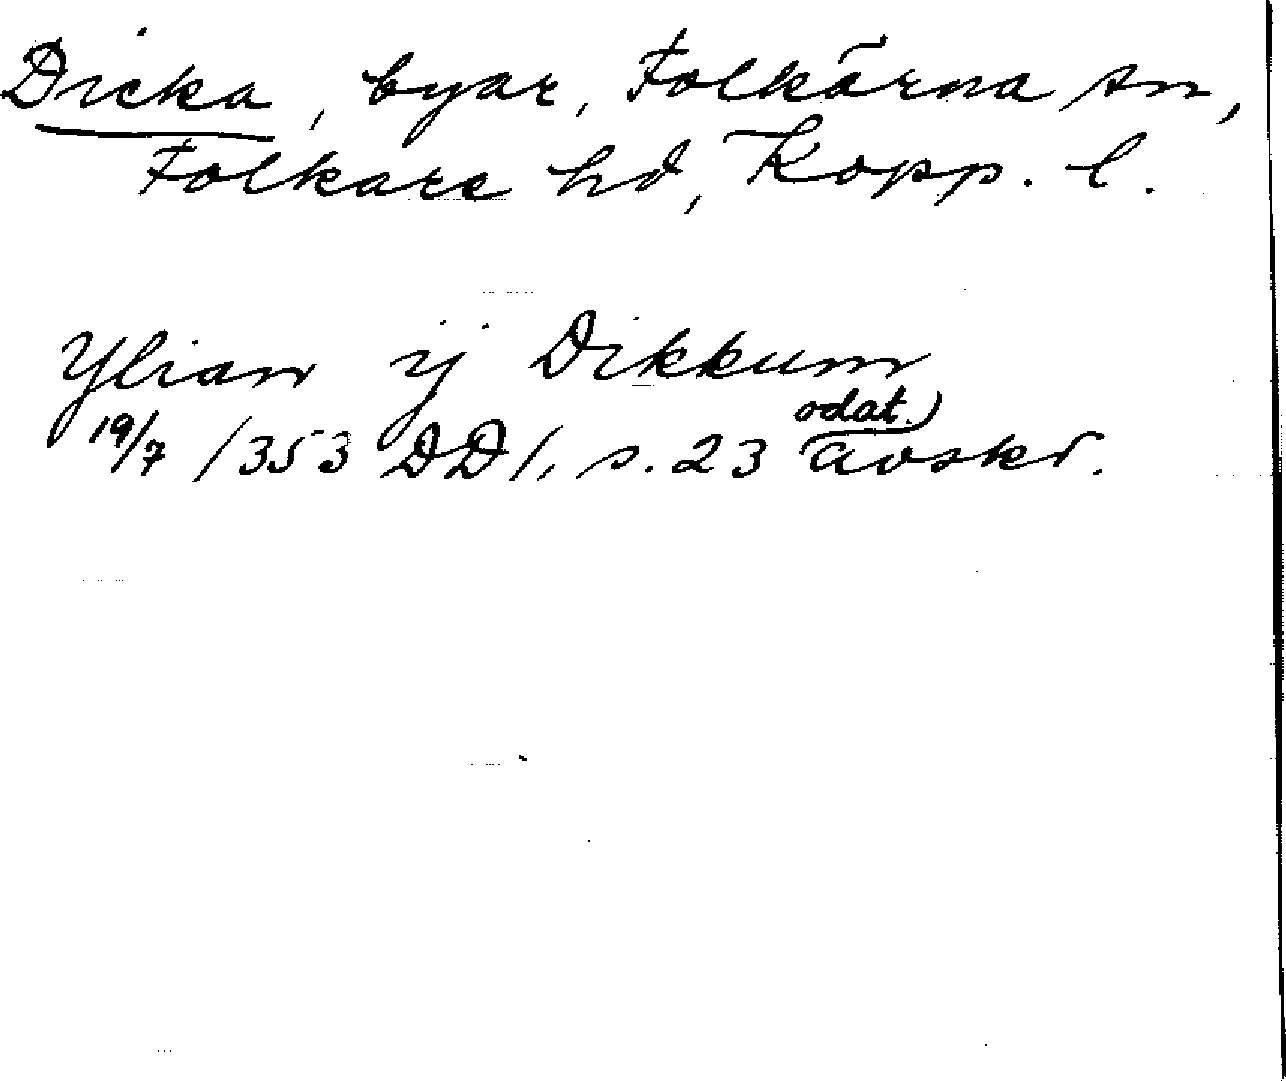 Dicka, byar, Folkärna sn,
Folkare hd, Kopp. l.
Ylian ij Dikkum
19/7 1353 DD 1, s. 23 odat.) avskr.